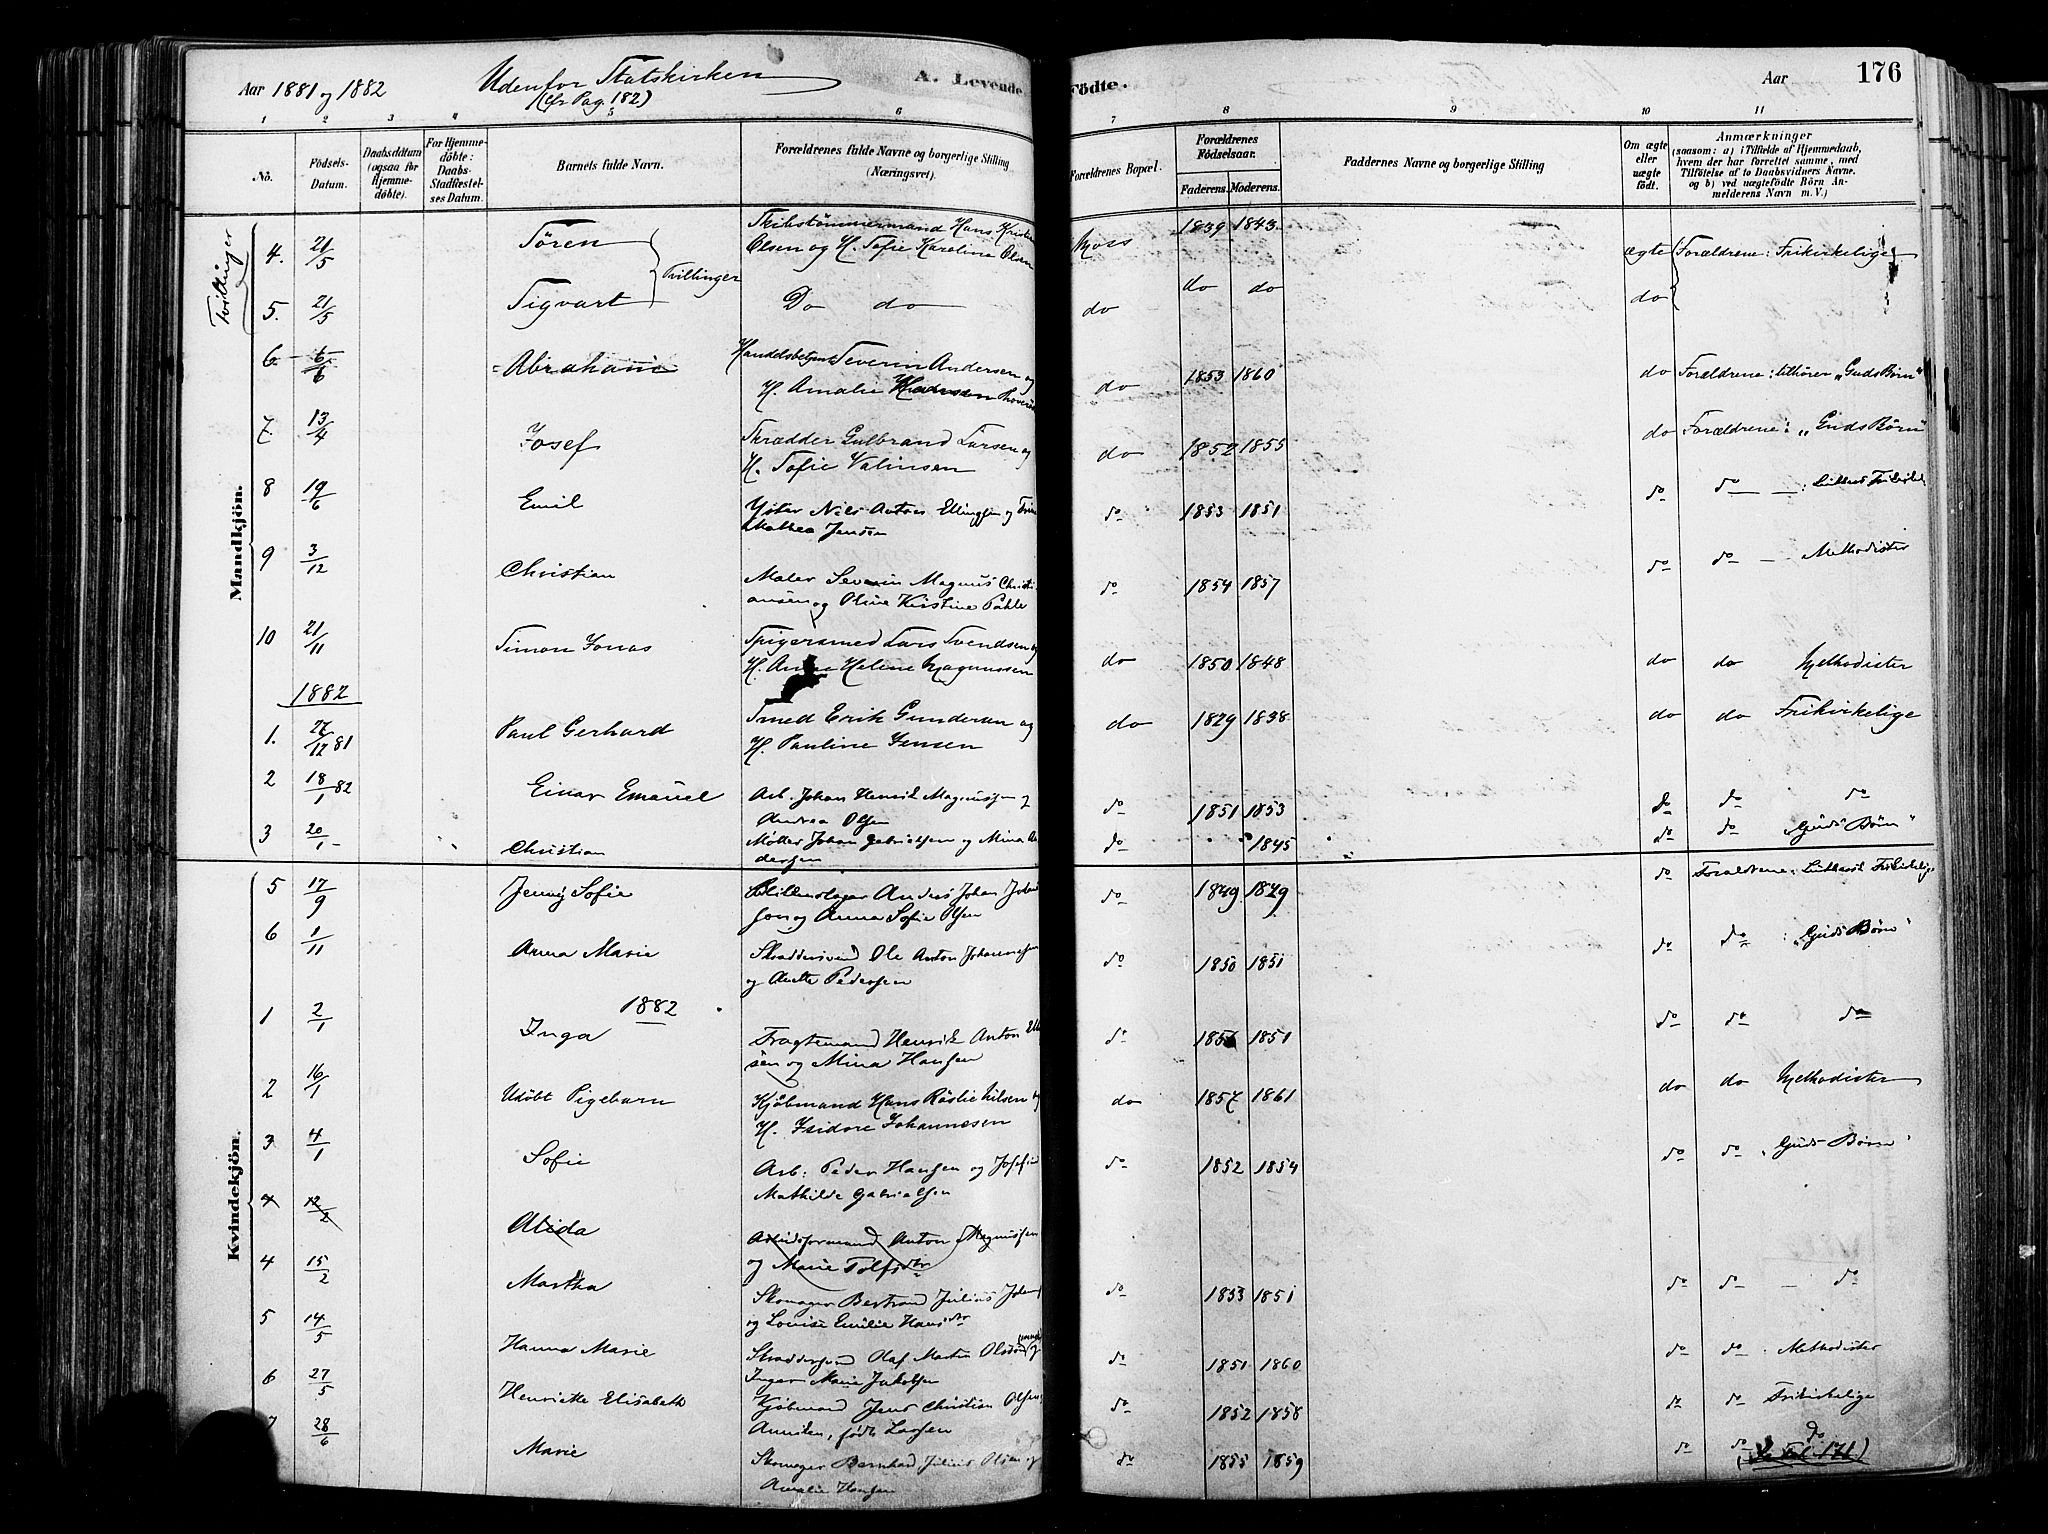 Aar 1881 og 1882
Udenfor Statskirken
(cfr Pag. 182)
A. Levende
Födte.
Aar
176
1 2 3 4 5 6 7 8 9 10 11
Nö.
Födsels-Datum.
Daabsdatum (ogsaa for Hjemmedöbte).
For Hjemmedöbte: Daabs-Stadfæstelses Datum.
Barnets fulde Navn.
Forældrenes fulde Navne og borgerlige Stilling (Næringsvei).
Forældrenes Bopæl.
Forældrenes Födselsaar.
Faderens. Moderens.
Faddernes Navne og borgerlige Stilling
Om ægte eller uægte födt.
Anmærkninger
(saasom: a) i Tilfælde af Hjemmedaab, hvem der har forrettet samme, med Tilföielse af to Daabsvidners Navne, og b) ved uægtefödte Börn Anmelderens Navn m. V.)
Mandkjön.
Tvillinger
4. 21/5 Sören Tvillinger Skibstömmermand Hans Kristian Moss 1839 1843 ægte Forældrene: Frikirkelige
Olsen og H. Sofie Karelina Olsen
5. 21/5 Sigvart Do do do do do do
6 6/6 Abraham Severin Andersen og do 1853 1860 do Forældrene: tilhører "Guds Børn"
H. Amalie
7. 13/4 Josef Skrædder Gulbrand Larsen og do 1852 1855 do Forældrene: "Guds Børn"
H. Sofie Valinsen
8 19/6 Emil Nils Anton Ellingsen og do 1853 1851 do do
Mathea Jensen
9 3/12 Christian Maler Severin Magnus Christi- do 1854 1857 do do - Methodister
ansen og Oline Kristine
10 21/11 Simon Jonas Spigersmed Lars Svendsen og do 1850 1848 do do Methodister
H. Anne Helene Magnussen
1882
1. 27/12 81 Paul Gerhard Smed Erik Gundersen og do 1829 1838 do do Frikirkelige
H. Pauline Jensen
2 18/1 82 Einar Emanuel Arb. Johan Henrik Magnussen og do 1851 1853 do do do
Andrea Olsen
3 20/1 Christian Møller Johan Gabrielsen og Mina An- do 1845 do do "Guds Børn"
dersen
Kvindekjön.
5 17/9 Jenny Sofie Anders Johan do 1849 1849 do Forældrene: Luthersk Frikirkelige
og Anna Sofie Olsen
6 1/11 Anna Marie Skræddersvend Ole Anton Johannessen do 1850 1851 do do : "Guds Børn"
og Anette Pedersen
1882
1 2/1 Inga Fragtemand Henrik Anton do 1851 do do do
sen og Mina Hansen
2 16/1 Udöbt Pigebarn Kjöbmand Hans Nilsen og do 1857 1861 do do Methodister
H. Isidore Johannesen
3 4/1 Sofie Arb: Peder Hansen og Josefine do 1852 1854 do do "Guds Børn"
Mathilde Gabrielsen
4 12/2 Alida Arbeidsformand Anton Magnussen
og Marie
4 15/2 Martha Skomager Bertrand Julius do 1853 1851 do do - do
og Lovise Emilie Hansdtr
5 14/5 Hanna Marie Skræddersvend Olaf Martin og do 1851 1860 do do . Methodister
Inger Marie Jakobsen
6 27/5 Henriette Elisabeth Kjöbmand Jens Christian Olsen do 1852 1858 do do Frikirkelige
født Larsen
7 28/6 Marie Skomager Bernhard Julius Olsen og do 1855 1859 do do do
Amalie Hansen